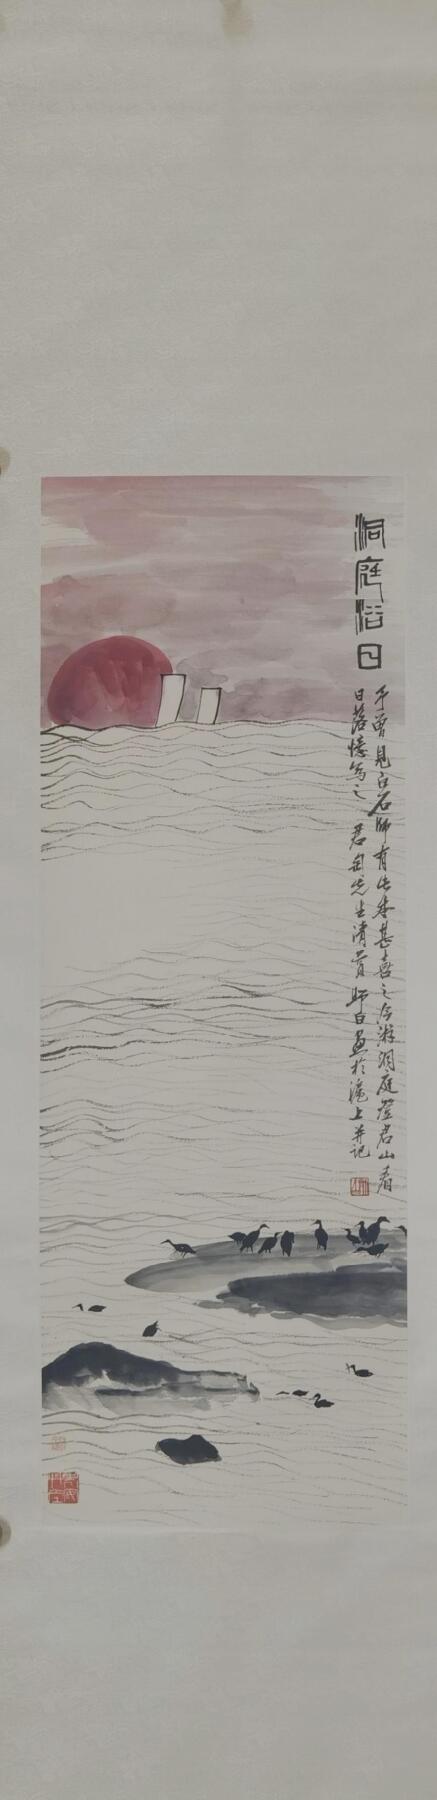 洞庭浴日
予曾見白石師有此本甚喜之今游洞庭登君山看
日落憶寫之 君匋先生清賞 師白畫於滬上并記